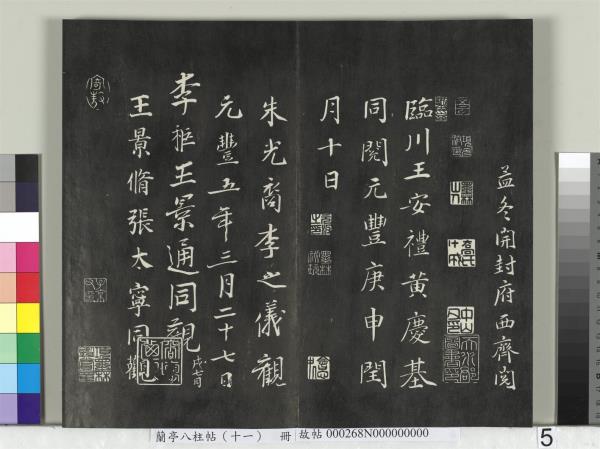 益冬開封府西齊閱
臨川王安禮黃慶基
同閱元豐庚申閏
月十日
朱光裔李之儀觀
元豐五年三月二十七日
李秬王景通同觀
戊七月
王景脩張太寧同觀
蘭亭八柱帖（十一） 冊 故帖 000268N000000000
5